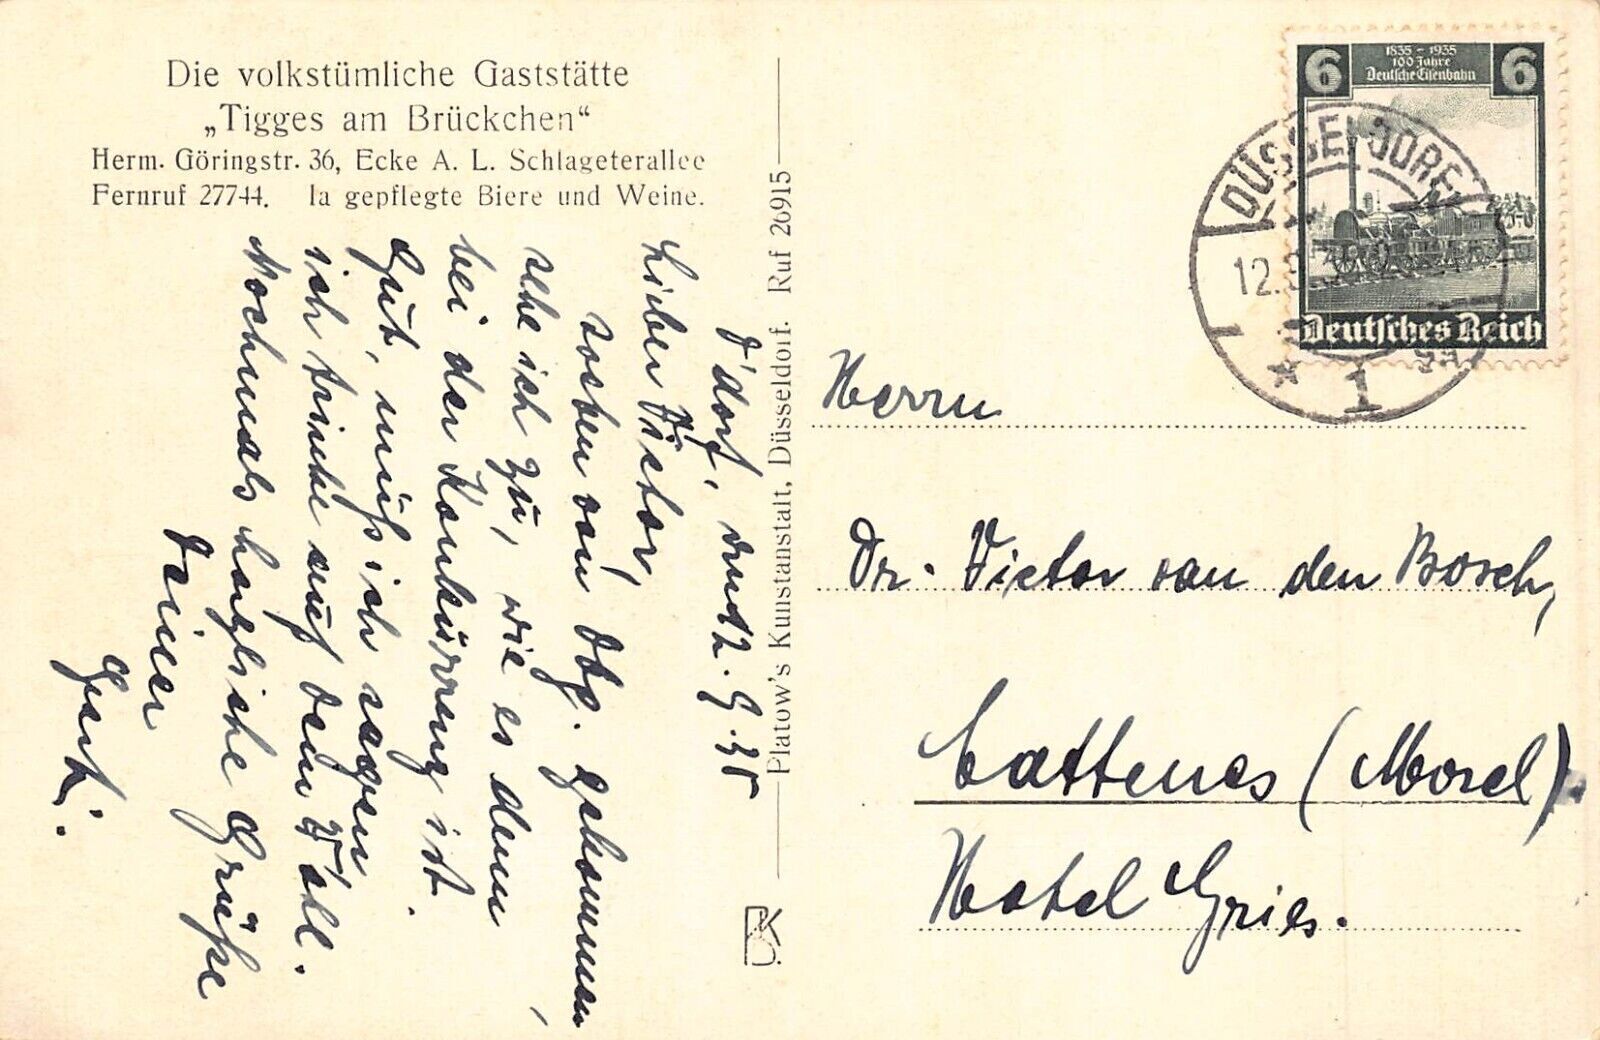 Die volkstümliche Gaststätte
„Tigges am Brückchen“
Herm. Göringstr. 36, Ecke A. L. Schlageterallee
Fernruf 27744. Ia gepflegte Biere und Weine.
D'dorf, den 12.9.35
Lieber Victor,
soeben von Obg. gekommen,
sehe ich zu, wie es denn
bei der Konkurrenz ist.
Gut, muß ich sagen
ich trinke auf Dein Wohl.
Nochmals herzliche Grüße
Deiner
Platow's Kunstanstalt, Düsseldorf. Ruf 26915
1835 - 1935
100 Jahre
Deutsche Eisenbahn
6 6
Deutsches Reich
DÜSSELDORF
12.
1
Herrn
Dr. Victor van den Bosch,
Cattenes (Mosel).
Hotel Gries.